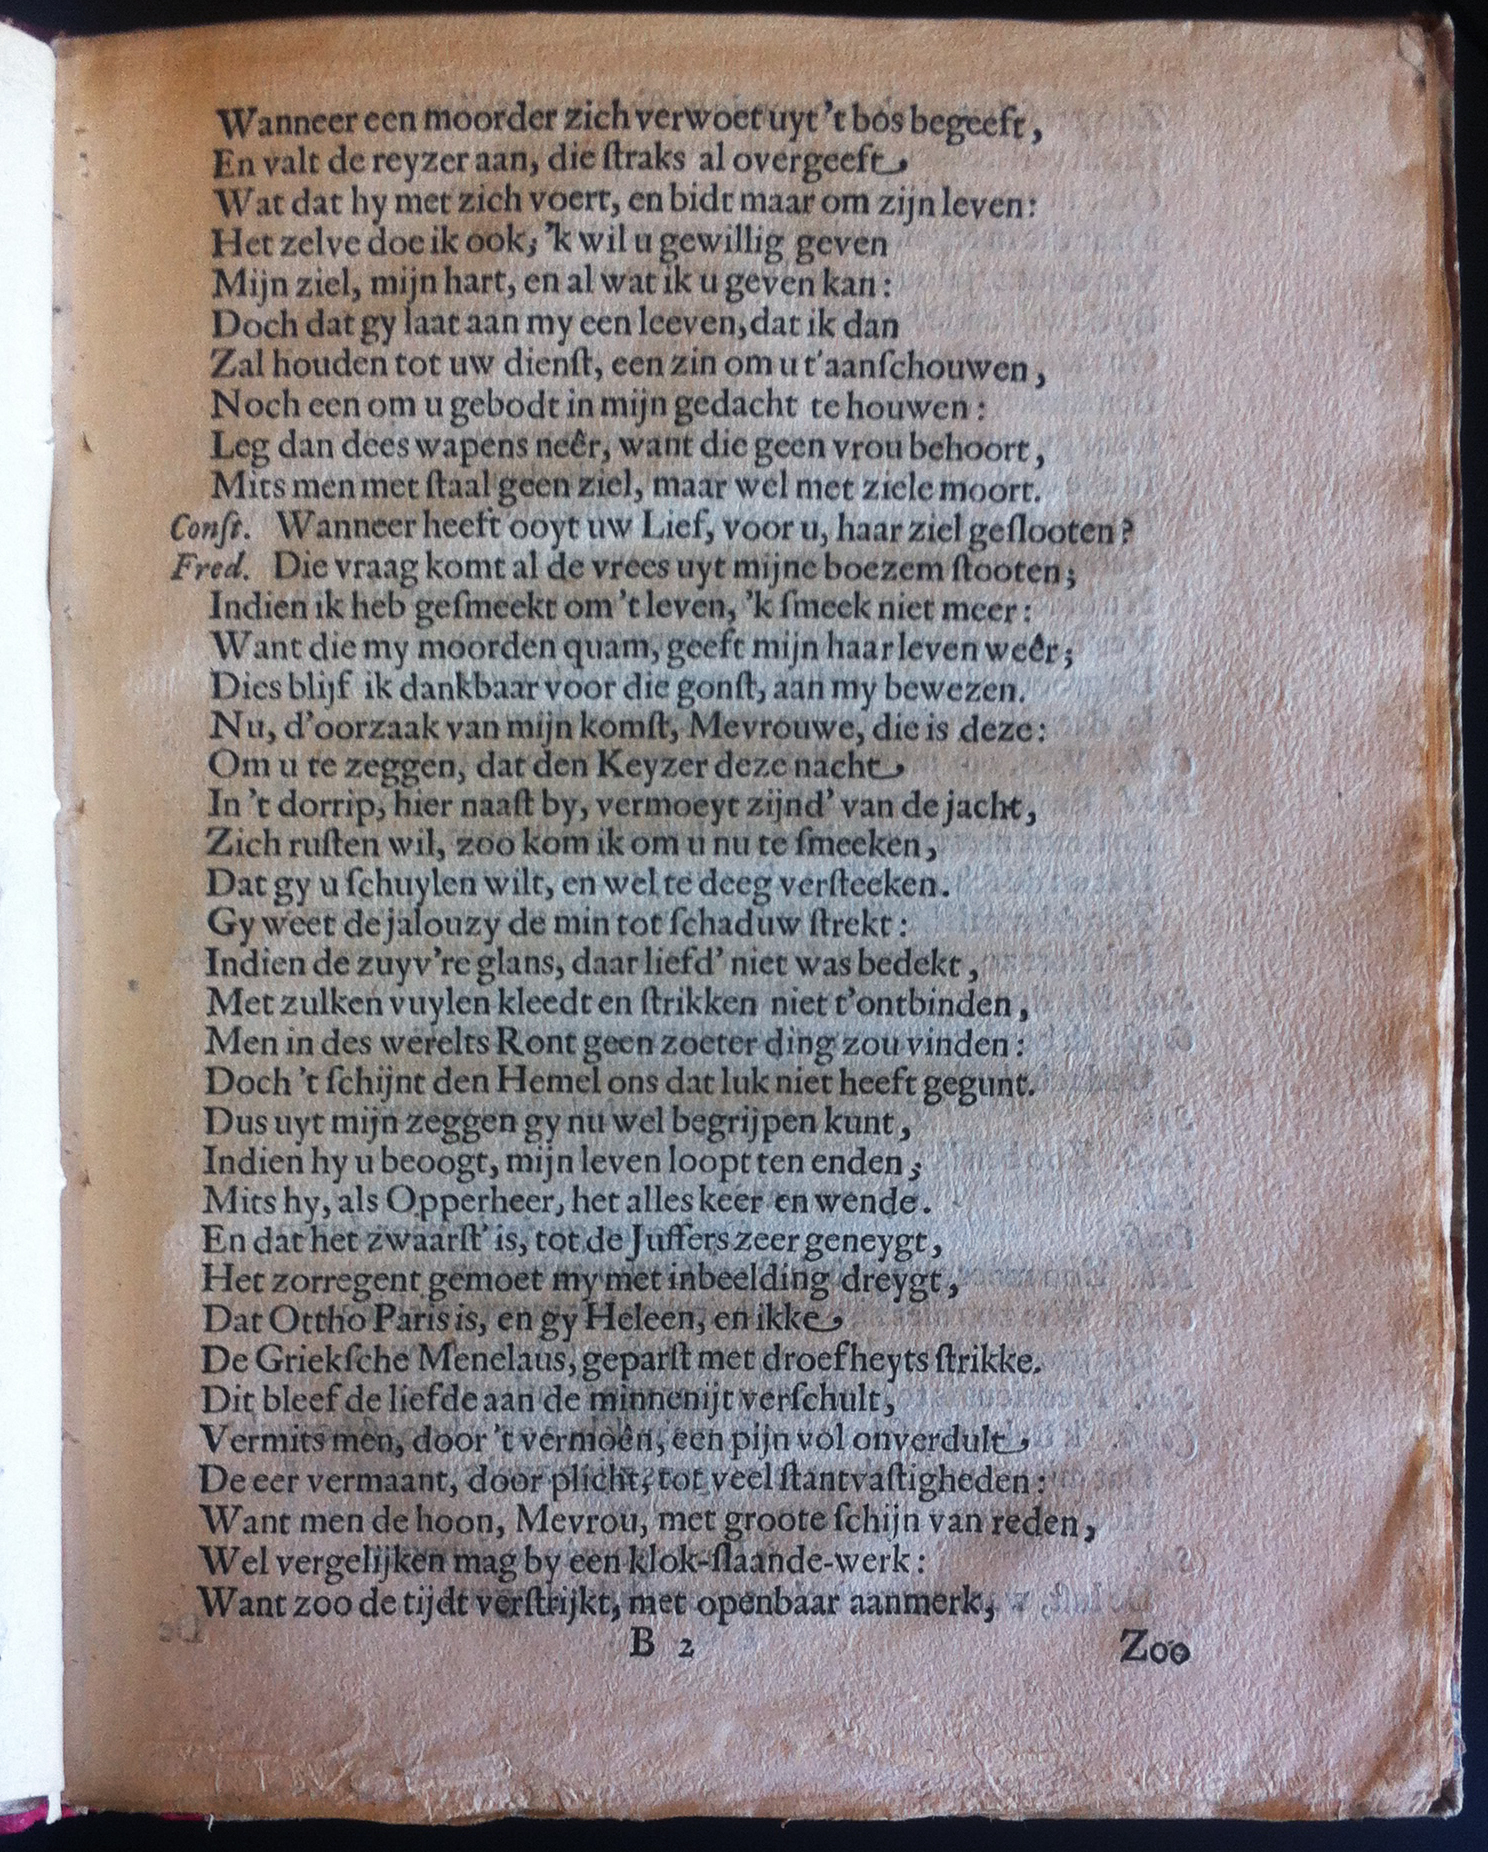 Wanneer een moorder zich verwoet uyt 't bos begeeft,
En valt de reyzer aan, die ſtraks al overgeeft
Wat dat hy met zich voert, en bidt maar om zijn leven:
Het zelve doe ik ook; 'k wil u gewillig geven
Mijn ziel, mijn hart, en al wat ik u geven kan:
Doch dat gy laat aan my een leeven, dat ik dan
Zal houden tot uw dienſt, een zin om u t'aanſchouwen,
Noch een om u gebodt in mijn gedacht te houwen:
Leg dan dees wapens neêr, want die geen vrou behoort,
Mits men met ſtaal geen ziel, maar wel met ziele moort.
Conſt. Wanneer heeft ooyt uw Lief, voor u, haar ziel geſlooten?
Fred. Die vraag komt al de vrees uyt mijne boezem ſtooten;
Indien ik heb geſmeekt om 't leven, 'k ſmeek niet meer:
Want die my moorden quam, geeft mijn haar leven weêr;
Dies blijf ik dankbaar voor die gonſt, aan my bewezen.
Nu, d'oorzaak van mijn komſt, Mevrouwe, die is deze:
Om u te zeggen, dat den Keyzer deze nacht
In 't dorrip, hier naaſt by, vermoeyt zijnd' van de jacht,
Zich ruſten wil, zoo kom ik om u nu te ſmeeken,
Dat gy u ſchuylen wilt, en wel te deeg verſteeken.
Gy weet de jalouzy de min tot ſchaduw ſtrekt:
Indien de zuyv're glans, daar liefd' niet was bedekt,
Met zulken vuylen kleedt en ſtrikken niet t'ontbinden,
Men in des werelts Ront geen zoeter ding zou vinden:
Doch 't ſchijnt den Hemel ons dat luk niet heeft gegunt.
Dus uyt mijn zeggen gy nu wel begrijpen kunt,
Indien hy u beoogt, mijn leven loopt ten enden;
Mits hy, als Opperheer, het alles keer en wende.
En dat het zwaarſt' is, tot de Juffers zeer geneygt,
Het zorregent gemoet my met inbeelding dreygt,
Dat Ottho Paris is, en gy Heleen, en ikke
De Griekſche Menelaus, geparſt met droefheyts ſtrikke.
Dit bleef de liefde aan de minnenijt verſchult,
Vermits men, door 't vermoên, een pijn vol onverdult
De eer vermaant, door plicht, tot veel ſtantvaſtigheden:
Want men de hoon, Mevrou, met groote ſchijn van reden,
Wel vergelijken mag by een klok-ſlaande-werk:
Want zoo de tijdt verſtrijkt, met openbaar aanmerk,
B 2 Zoo